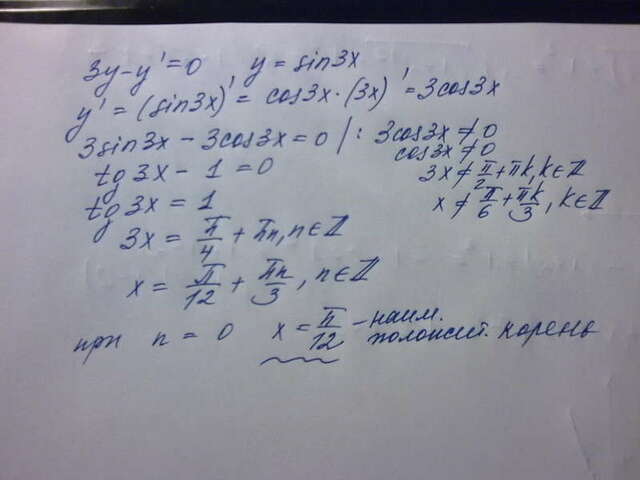 3y-y'=0 y=sin3x
y'=(sin3x)'=cos3x·(3x)'=3cos3x
3sin3x-3cos3x=0 |: 3cos3x≠0
cos3x≠0
tg3x-1=0
3x≠π/2+πk, k∈Z
tg3x=1
x≠π/6+πk/3, k∈Z
3x=π/4+πn, n∈Z
x=π/12+πn/3, n∈Z
при n=0 x=π/12 -наим.
положит. корень